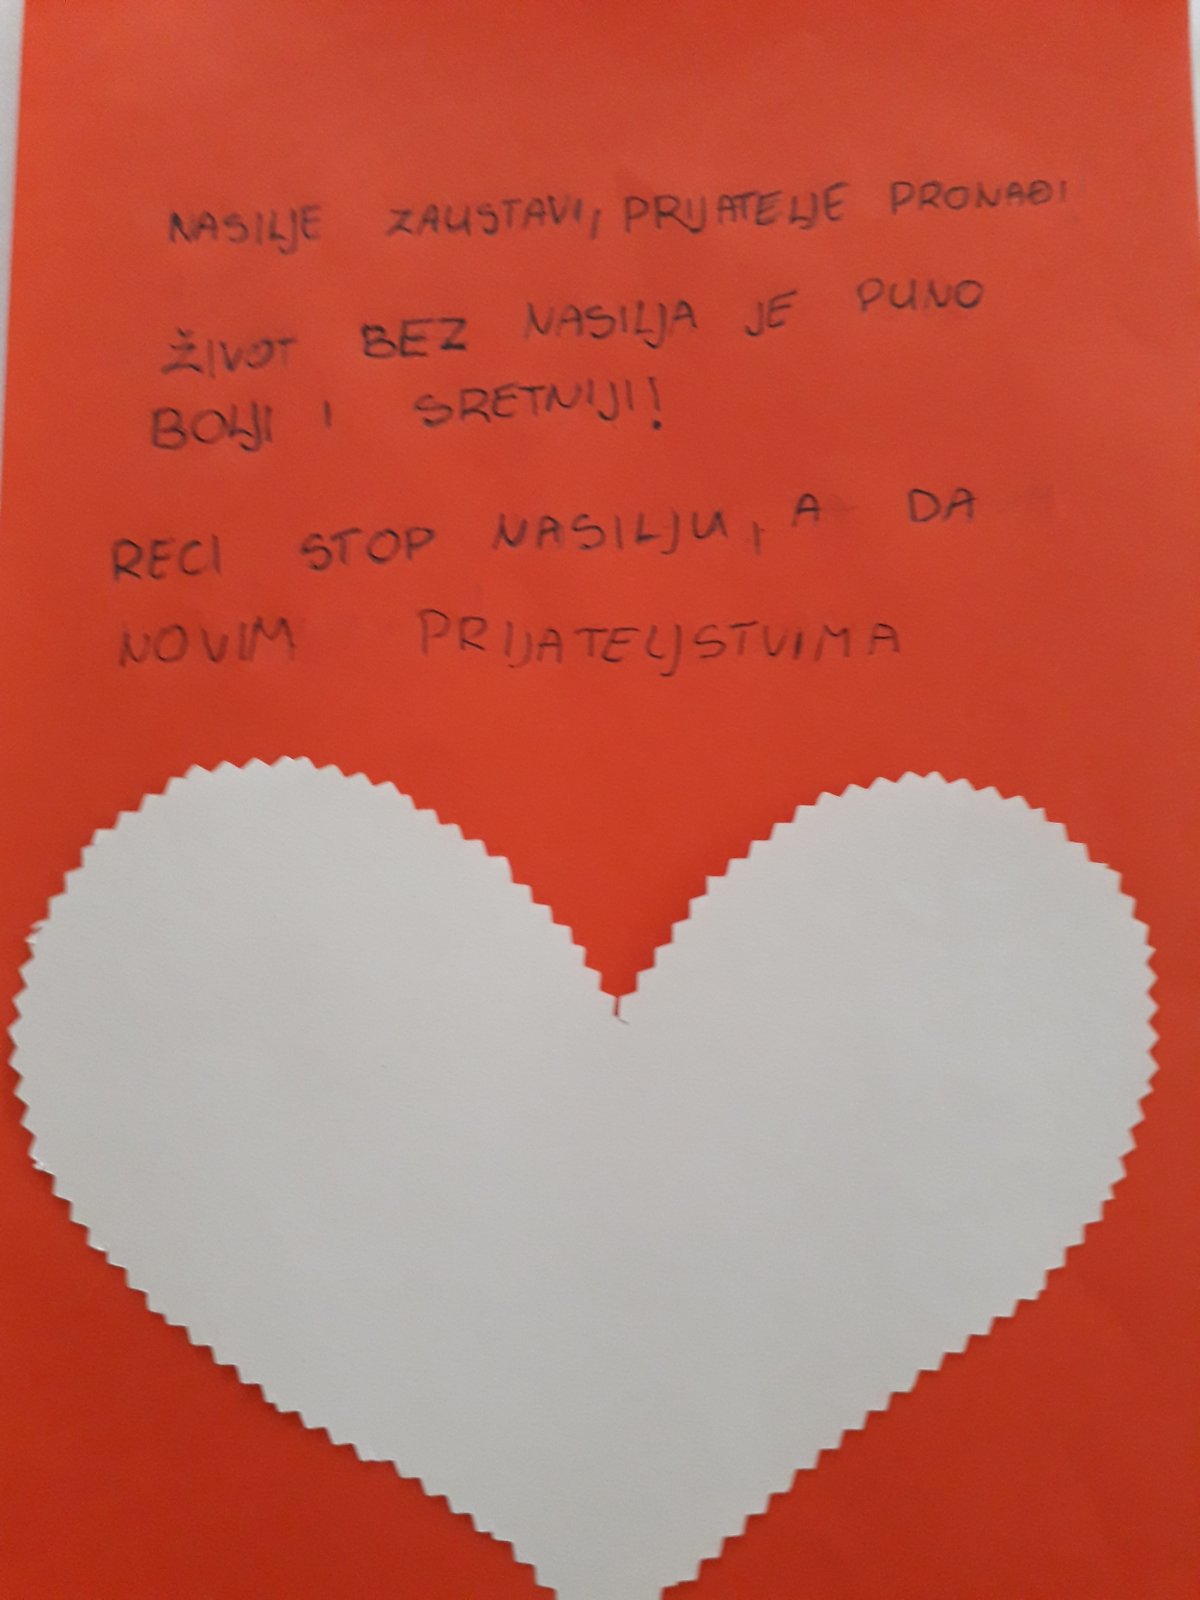 NASILJE ZAUSTAVI, PRIJATELJE PRONAĐI
ŽIVOT BEZ NASILJA JE PUNO
BOLJI I SRETNIJI!
RECI STOP NASILJU, A DA
NOVIM PRIJATELJSTVIMA